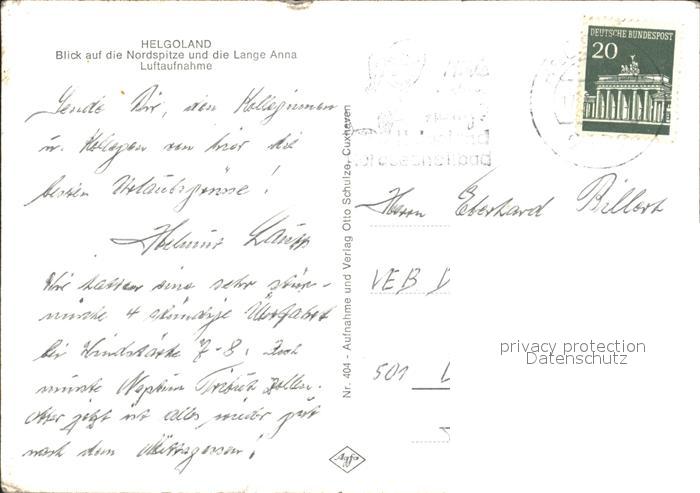 HELGOLAND
Blick auf die Nordspitze und die Lange Anna
Luftaufnahme
Sende Dir, den Kolleginnen
u. Kollegen von hier die
besten Urlaubsgrüsse!
Helmut
Wir hatten eine sehr stür-
mische 4 stündige Überfahrt
bei Windstärke 7-8;
musste Neptun Tribut zollen.
Aber jetzt ist alles wieder gut
nach dem Mittagessen!
Nr. 404 - Aufnahme und Verlag Otto Schulze, Cuxhaven
Agfa
DEUTSCHE BUNDESPOST
20
Herrn Eberhard Billert
VEB
501 L
privacy protection
Datenschutz